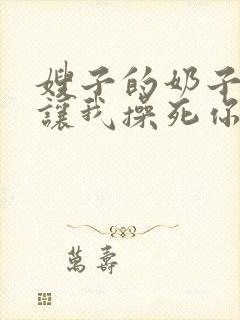 嫂子的奶子
讓我操死你
萬壽